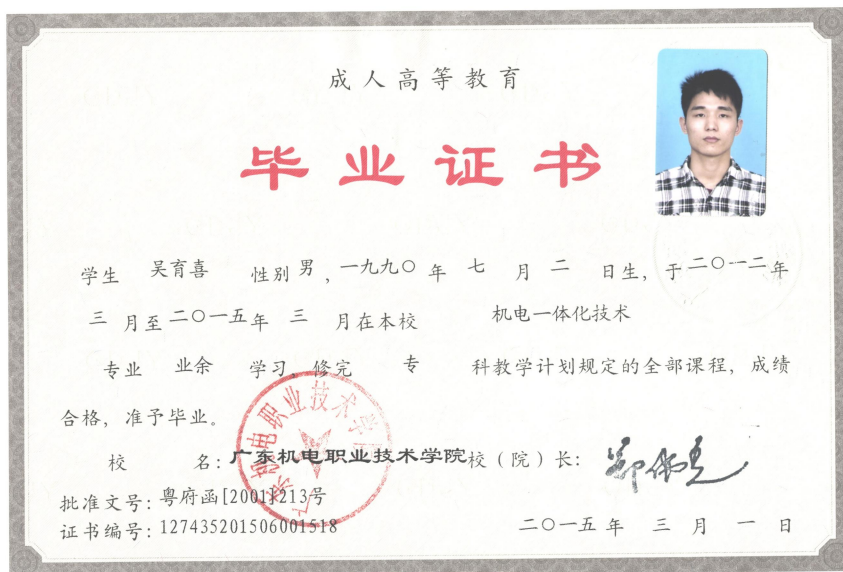 成人高等教育
毕业证书
学生 吴育喜 性别男，一九九〇年 七 月 二 日生，于二〇一二年
三 月至二〇一五年 三 月在本校 机电一体化技术
专业 业余 学习，修完 专 科教学计划规定的全部课程，成绩
合格，准予毕业。
校 名：广东机电职业技术学院 校（院）长：
批准文号：粤府函[2001]213号
证书编号：127435201506001518 二〇一五年 三 月 一 日
广东机电职业技术学院